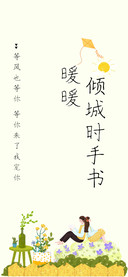 倾城时手书
暖暖
等风也等你 等你来了我宠你